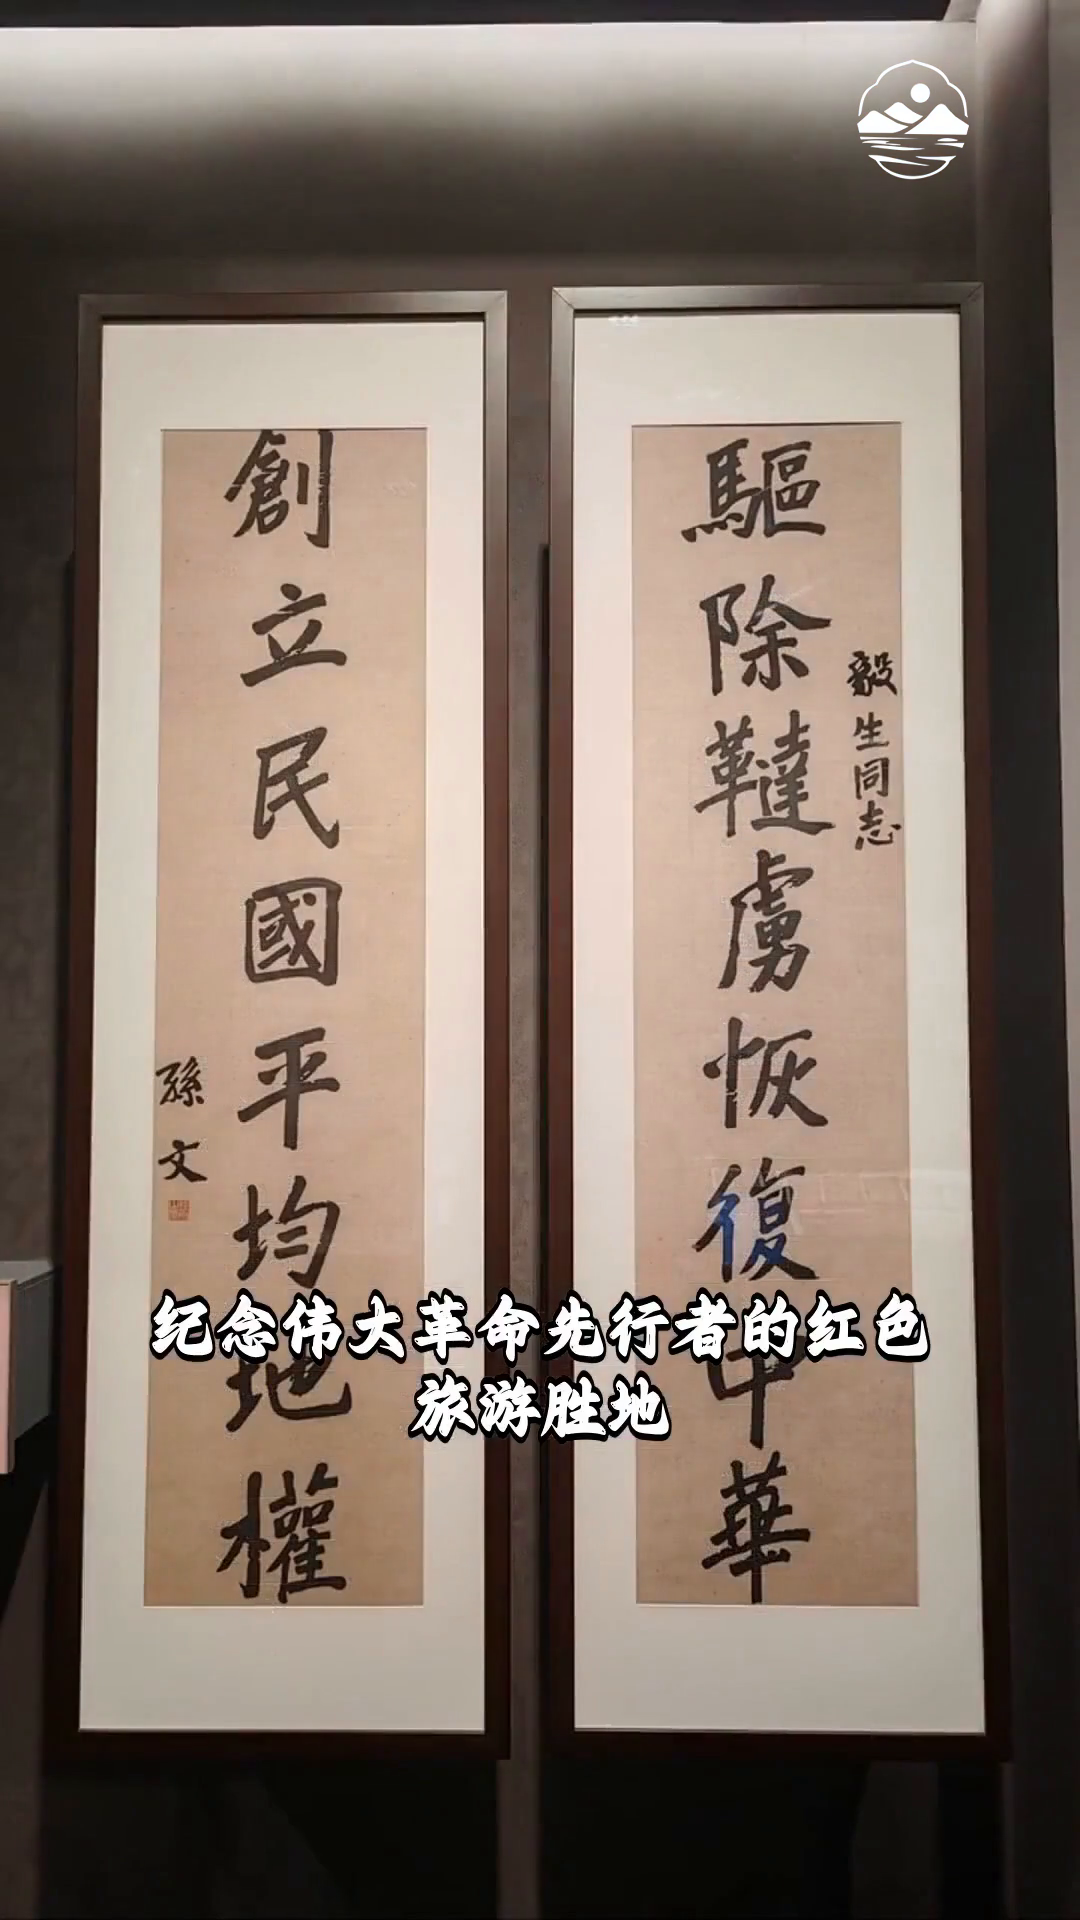 驅除韃虜恢復中華
毅生同志
創立民國平均地權
孫文
纪念伟大革命先行者的红色
旅游胜地